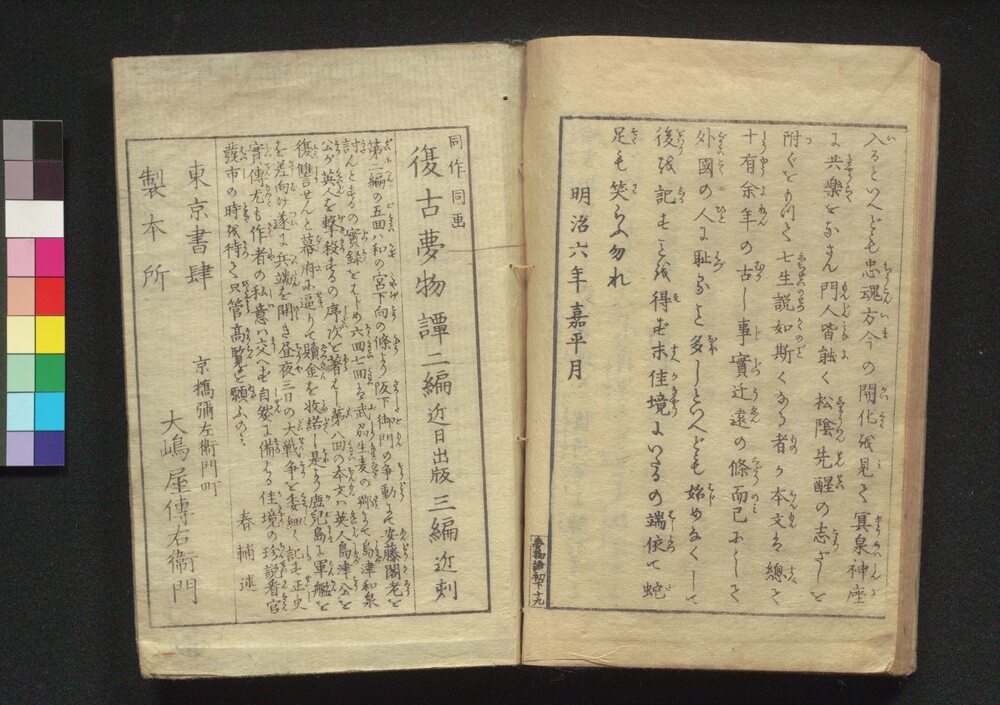 入るといへども忠魂方今の開化を見て冥泉神座
に共樂をなさん門人皆能く松陰先醒の志ざしを
附ぐをもつて七生説如斯くなる者か本文は總て
十有余年の古し事實迂遠の條而已にして
外國の人に恥ること多しといへども始めなくして
後を記すことを得ず未佳境にいるの端依て蛇
足も笑らふ勿れ
明治六年嘉平月
夢物語初下十九
同作同画
復古夢物譚二編近日出版三編近刻
第二編の五回ハ和の宮下向の條より阪下御門の争動にて安藤閣老を
討んとするの實録をはじめ六回七回は武刕生麦の郷にて島津和泉
公が英人を撃殺するの序次を著はし第八回の本文ハ英人島津公を
復讐せんと幕府に逼りて贖金を收諾し是より鹿児島に軍艦を
を差向け遂に兵端を開き昼夜三日の大戦争を委細く記す正史
實傳尤も作者の私意ハ交へず自然に備はる佳境の珍説看官
發市の時を待て只管高覧を願ふのミ
春輔述
東京書肆
製本所
京橋彌左衛門町
大嶋屋傳右衛門